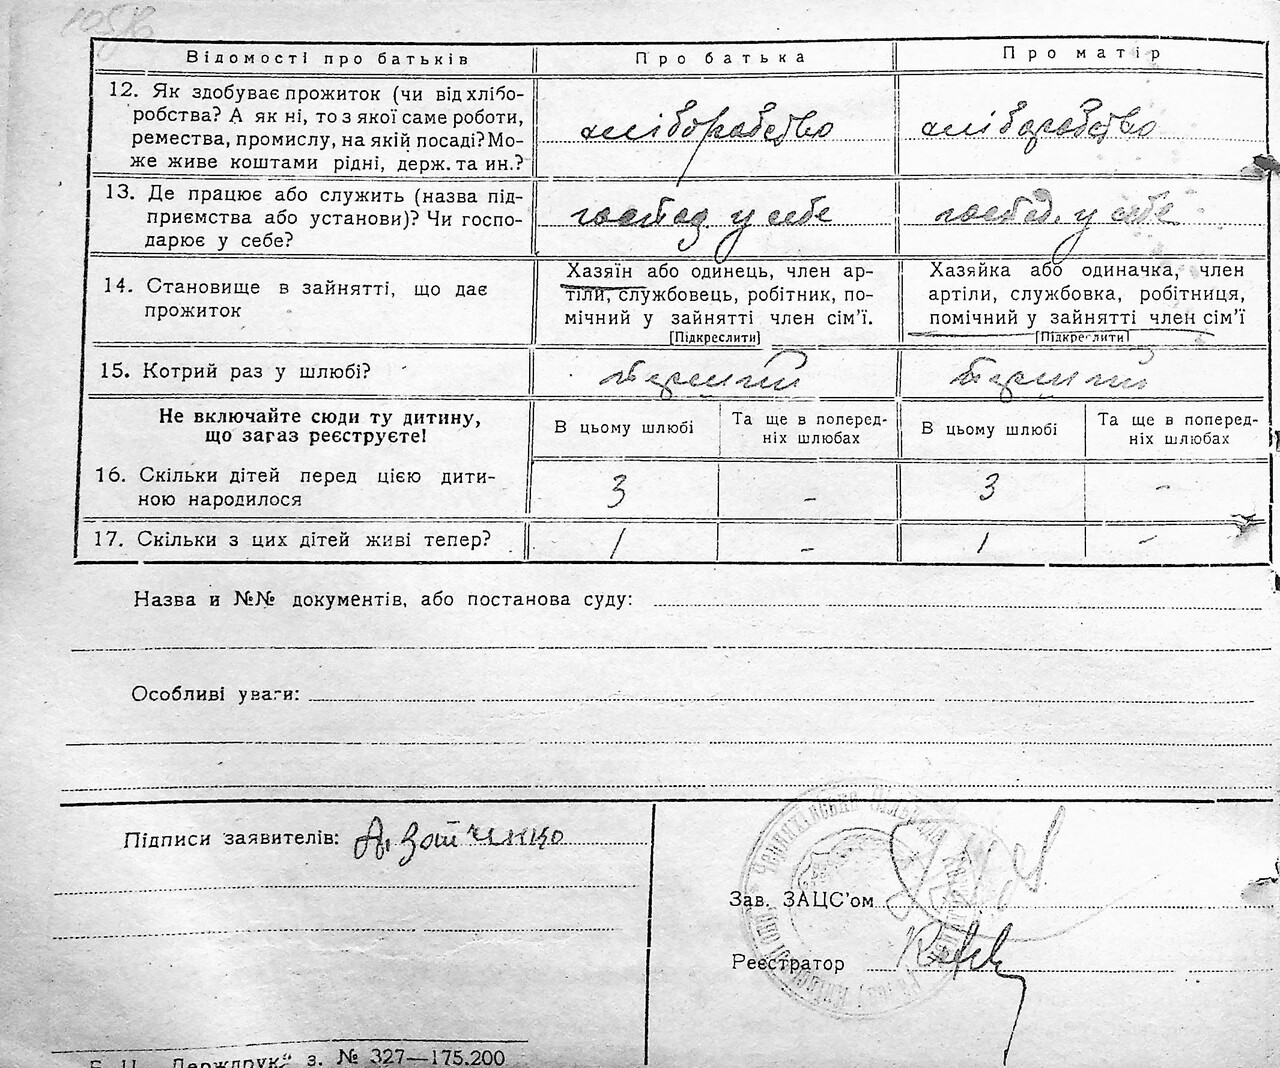 Відомості про батьків
Про батька
Про матір
12. Як здобуває прожиток (чи від хлібо-
робства? А як ні, то з якої саме роботи,
ремества, промислу, на якій посаді? Мо-
же живе коштами рідні, держ. та ин.?
хліборобство
хліборобство
13. Де працює або служить (назва під-
приємства або установи)? Чи госпо-
дарює у себе?
господ у себе
господ. у себе
14. Становище в зайнятті, що дає
прожиток
Хазяїн або одинець, член ар-
тіли, службовець, робітник, по-
мічний у зайнятті член сім'ї.
[Підкреслити]
Хазяйка або одиначка, член
артіли, службовка, робітниця,
помічний у зайнятті член сім'ї
[Підкреслити]
15. Котрий раз у шлюбі?
перший
перший
Не включайте сюди ту дитину,
що загаз реєструєте!
В цьому шлюбі
Та ще в поперед-
ніх шлюбах
В цьому шлюбі
Та ще в поперед-
ніх шлюбах
16. Скільки дітей перед цією дити-
ною народилося
3 - 3 -
17. Скільки з цих дітей живі тепер?
1 - 1 -
Назва и №№ документів, або постанова суду:
Особливі уваги:
Підписи заявителів:
Зав. ЗАЦС'ом
Реєстратор
Держдрук" з. № 327—175.200